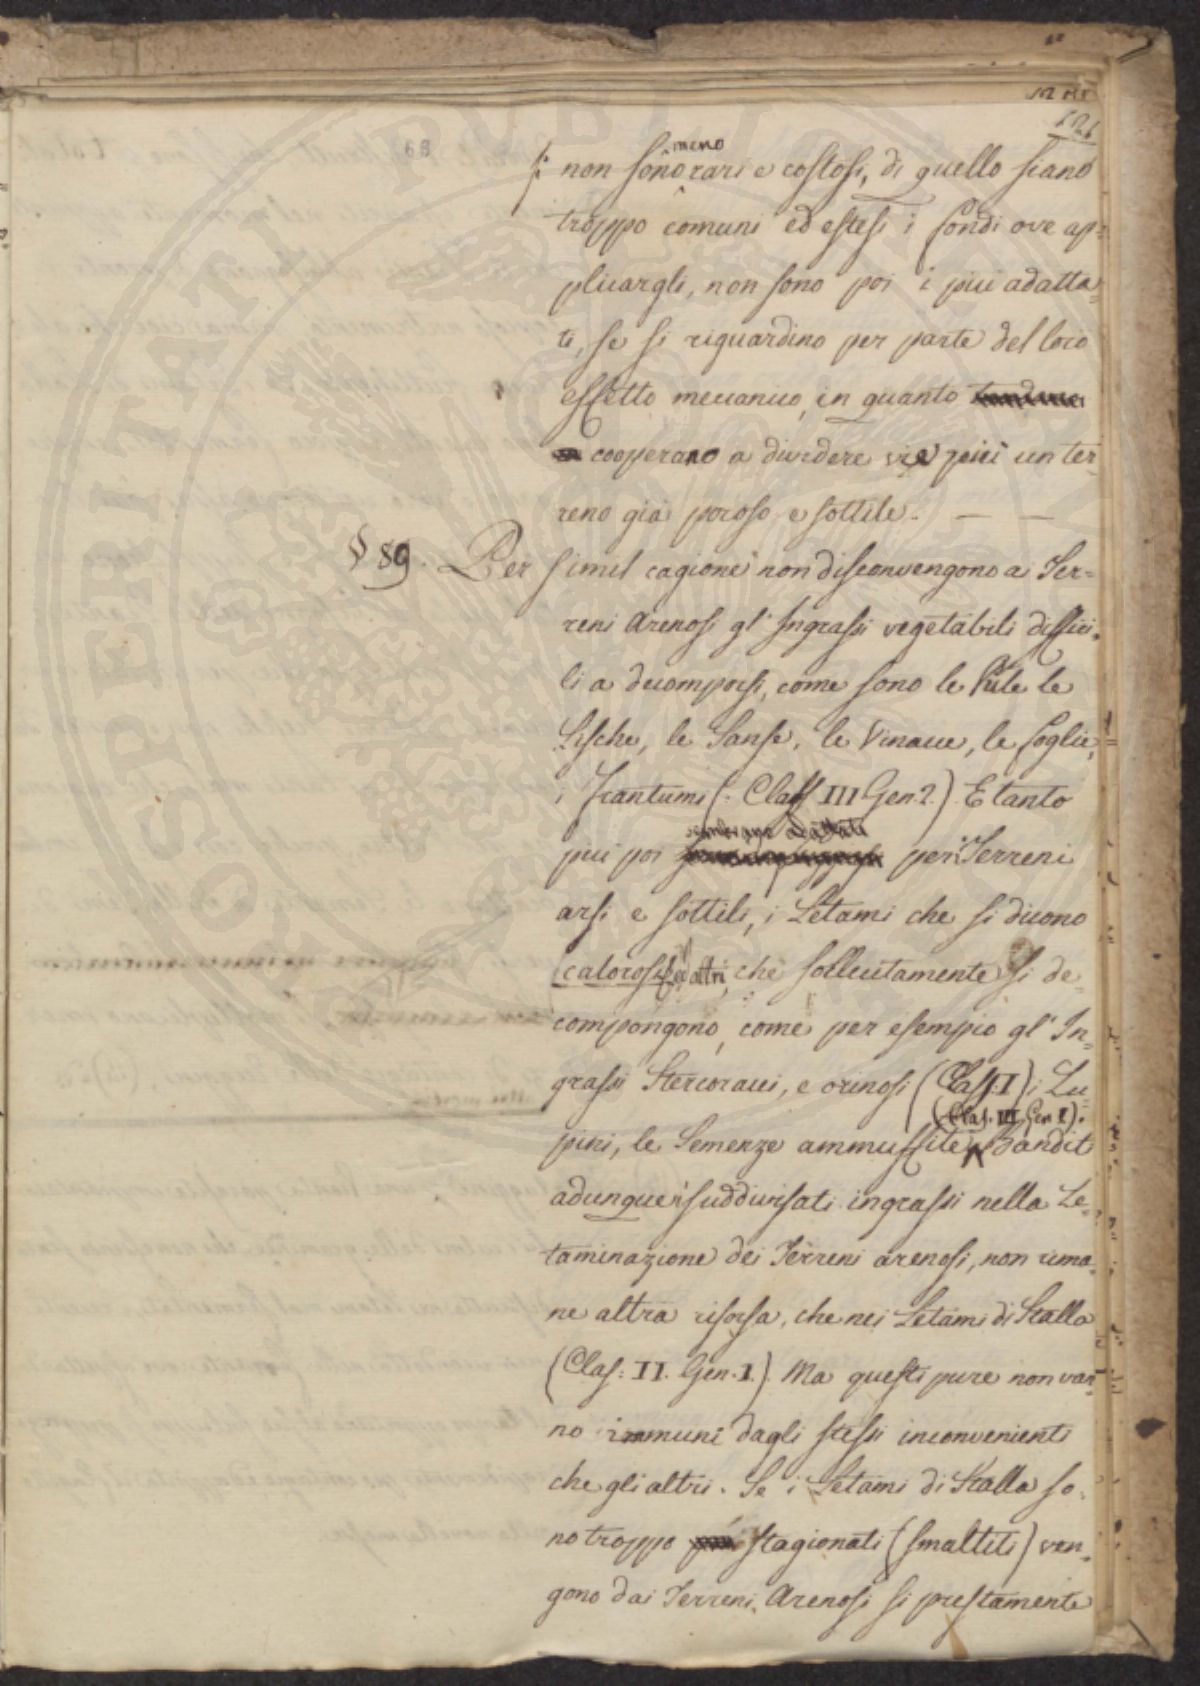 121
meno
non sono rari e costosi, di quello siano
troppo comuni ed estesi i fondi ove ap=
plicargli, non sono poi i più adatta=
ti, se si riguardino per parte del loro
effetto meccanico, in quanto
cooperano a dividere vie più un ter=
reno già poroso e sottile. — —
§ 89. Per simil cagione non disconvengono a Ter=
reni Arenosi gl' Ingrassi vegetabili diffici=
li a decomporsi, come sono le Pule le
Lische, le Sanse, le Vinacce, le foglie,
i frantumi (: Class III Gen. 2.) E tanto
sembrano adattati
più poi per i Terreni
arsi e sottili, i Letami che si dicono
calorosi, ed altri, che sollecitamente si de=
compongono, come per esempio gl' In=
grassi Stercoracei, e orinosi (Class: I) i Lu=
(Clas. III Gen 1).
pini, le Semenze ammuffite Banditi
adunque i suddivisati ingrassi nella Le=
taminazione dei Terreni arenosi, non rima=
ne altra risorsa, che nei Letami di Stalla
(Clas: II. Gen. I.) Ma questi pure non van=
no immuni dagli stessi inconvenienti
che gli altri. Se i Letami di Stalla so=
no troppo stagionati (smaltiti) ven=
gono dai Terreni Arenosi sì prestamente